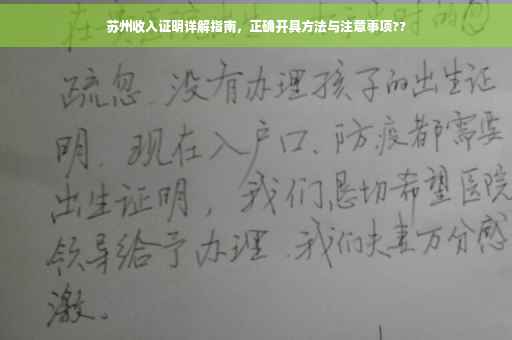 苏州收入证明详解指南，正确开具方法与注意事项??
疏忽.没有办理孩子的出生证
明.现在入户口、防疫都需要
出生证明，我们恳切希望医院
领导给予办理.我们夫妻万分感
激。